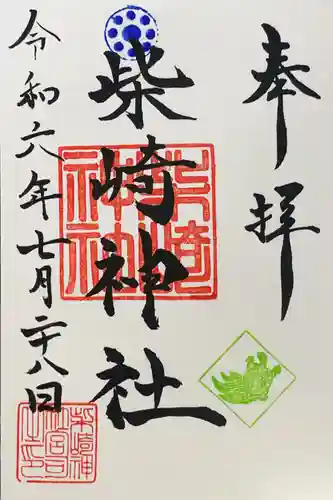 奉拝
柴崎神社
令和六年七月二十八日
柴崎神社